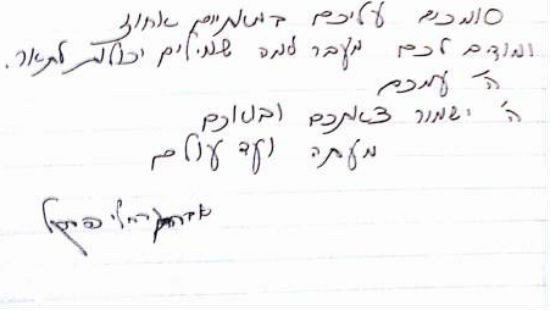 סומכים עליכם במאתיים אחוז
ומודים לכם מעבר למה שמילים יכולות לתאר.
ה' עמכם
ה' ישמור צאתכם ובואכם
מעתה ועד עולם